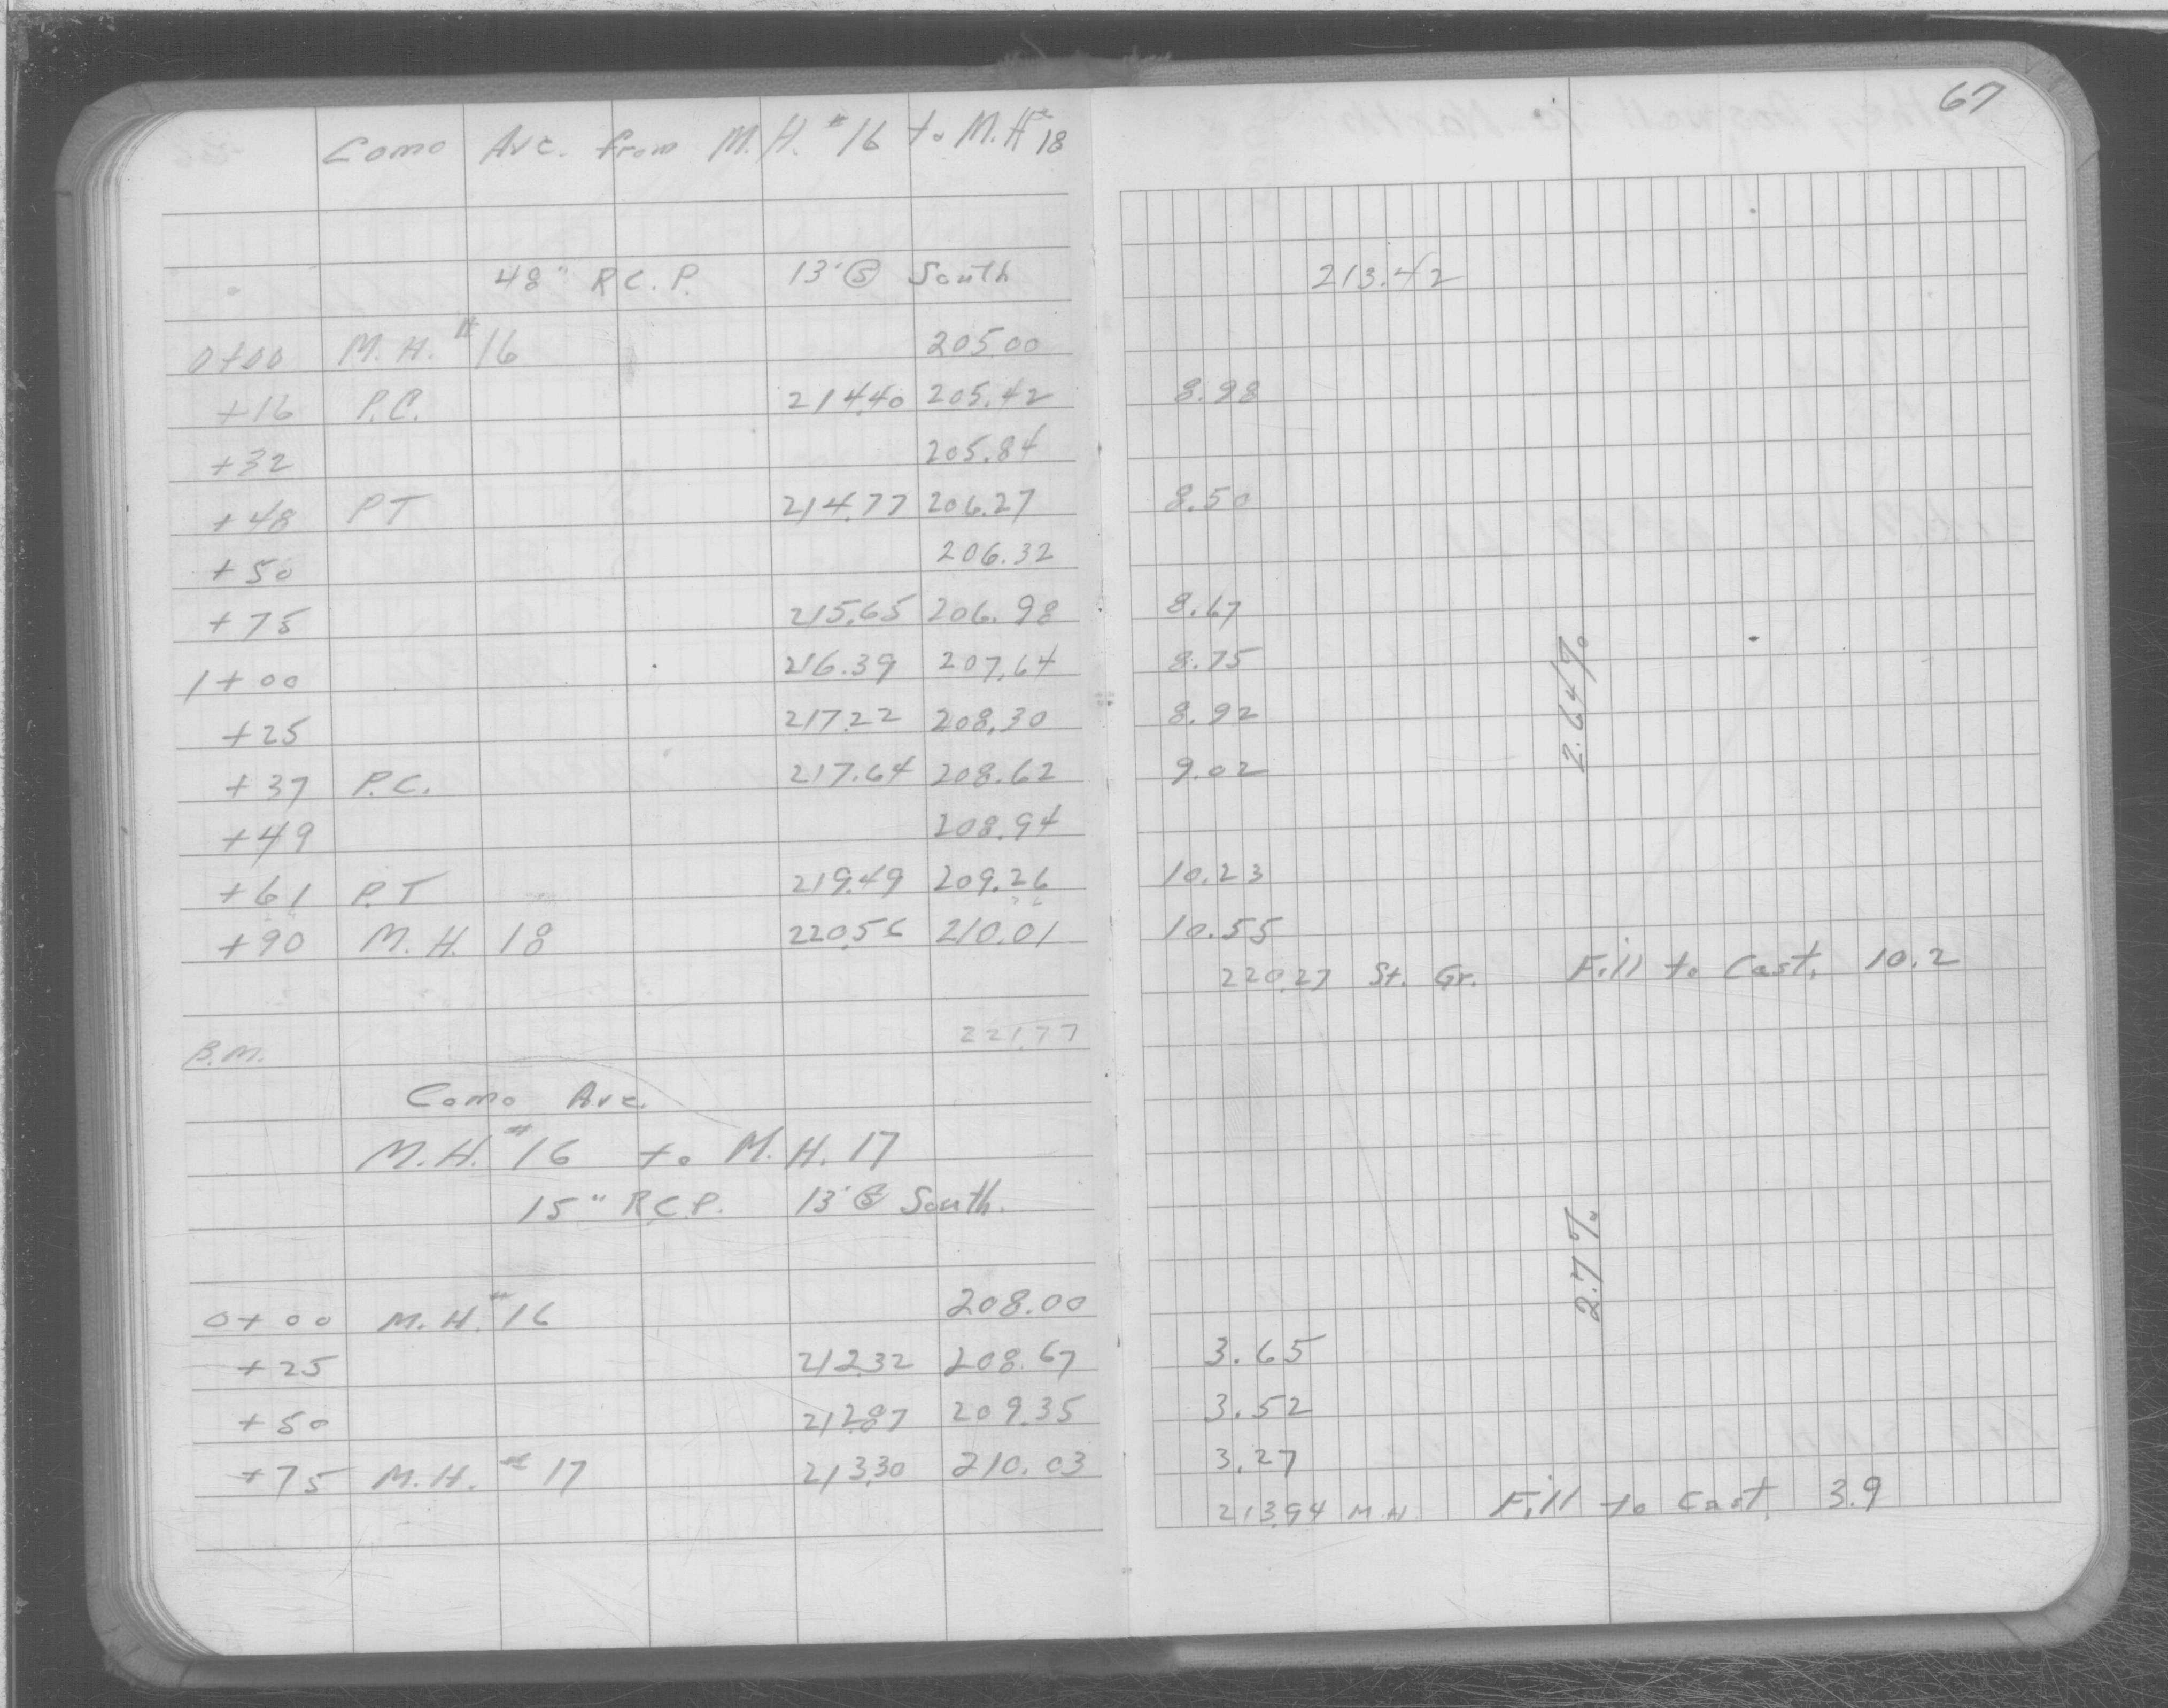 67
Como Ave. from M.H. #16 to M.H# 18
48" R.C.P. 13' Ⓢ South 213.42
0+00 M.H. #16 205 00
+16 P.C. 214.40 205.42 8.98
+32 205.84
+48 PT 214.77 206.27 8.50
+50 206.32
+75 215.65 206.98 8.67
1+00 216.39 207.64 8.75
+25 217.22 208.30 8.92
2.64%
+37 P.C. 217.64 208.62 9.02
+49 208.94
+61 P.T 219.49 209.26 10.23
+90 M.H. 18 220.56 210.01 10.55
220.27 St. Gr. Fill to Cast. 10.2
B.M. 221.77
Como Ave.
M.H. #16 to M.H. 17
15" R.C.P. 13' Ⓢ South.
2.7%
0+00 M.H. #16 208.00
+25 212.32 208.67 3.65
+50 212.87 209.35 3.52
+75 M.H. # 17 213.30 210.03 3.27
213.94 M.H Fill to Cast. 3.9